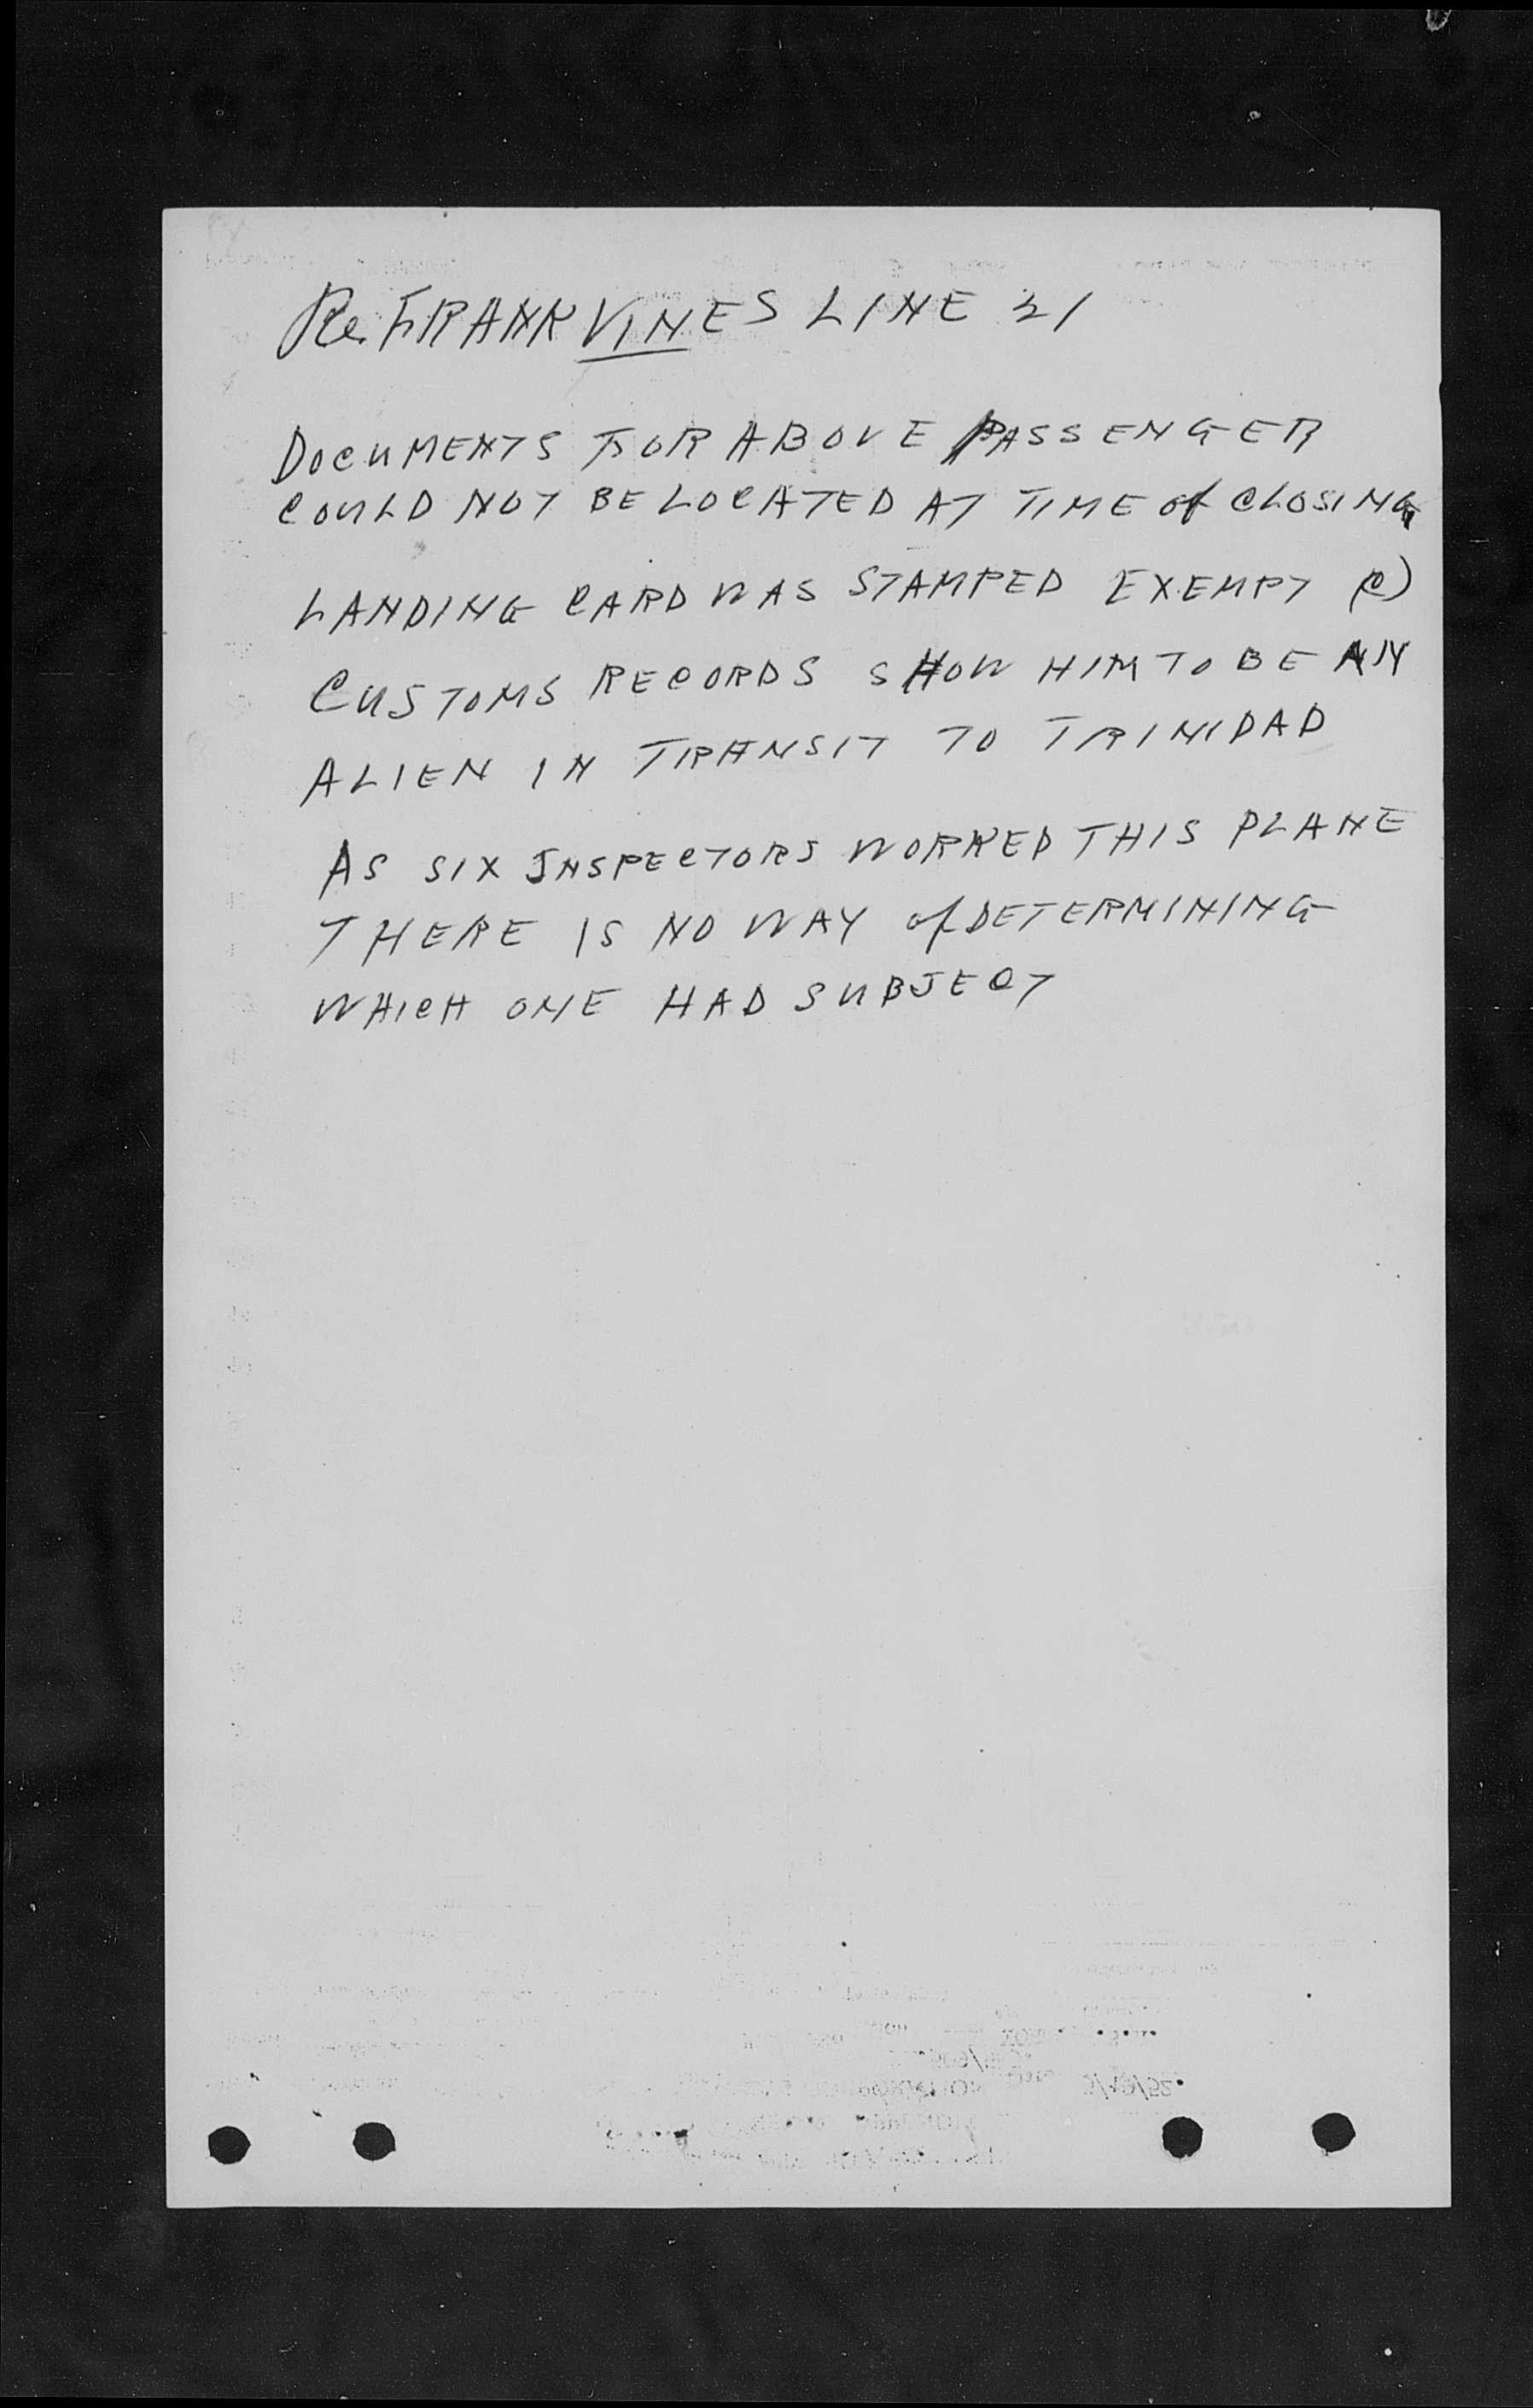 Re. FRANK VINES LINE 21
DOCUMENTS FOR ABOVE PASSENGER
COULD NOT BE LOCATED AT TIME of CLOSING
LANDING CARD WAS STAMPED EXEMPT (C)
CUSTOMS RECORDS SHOW HIM TO BE AN
ALIEN IN TRANSIT TO TRINIDAD
AS SIX INSPECTORS WORKED THIS PLANE
THERE IS NO WAY of DETERMINING
WHICH ONE HAD SUBJECT